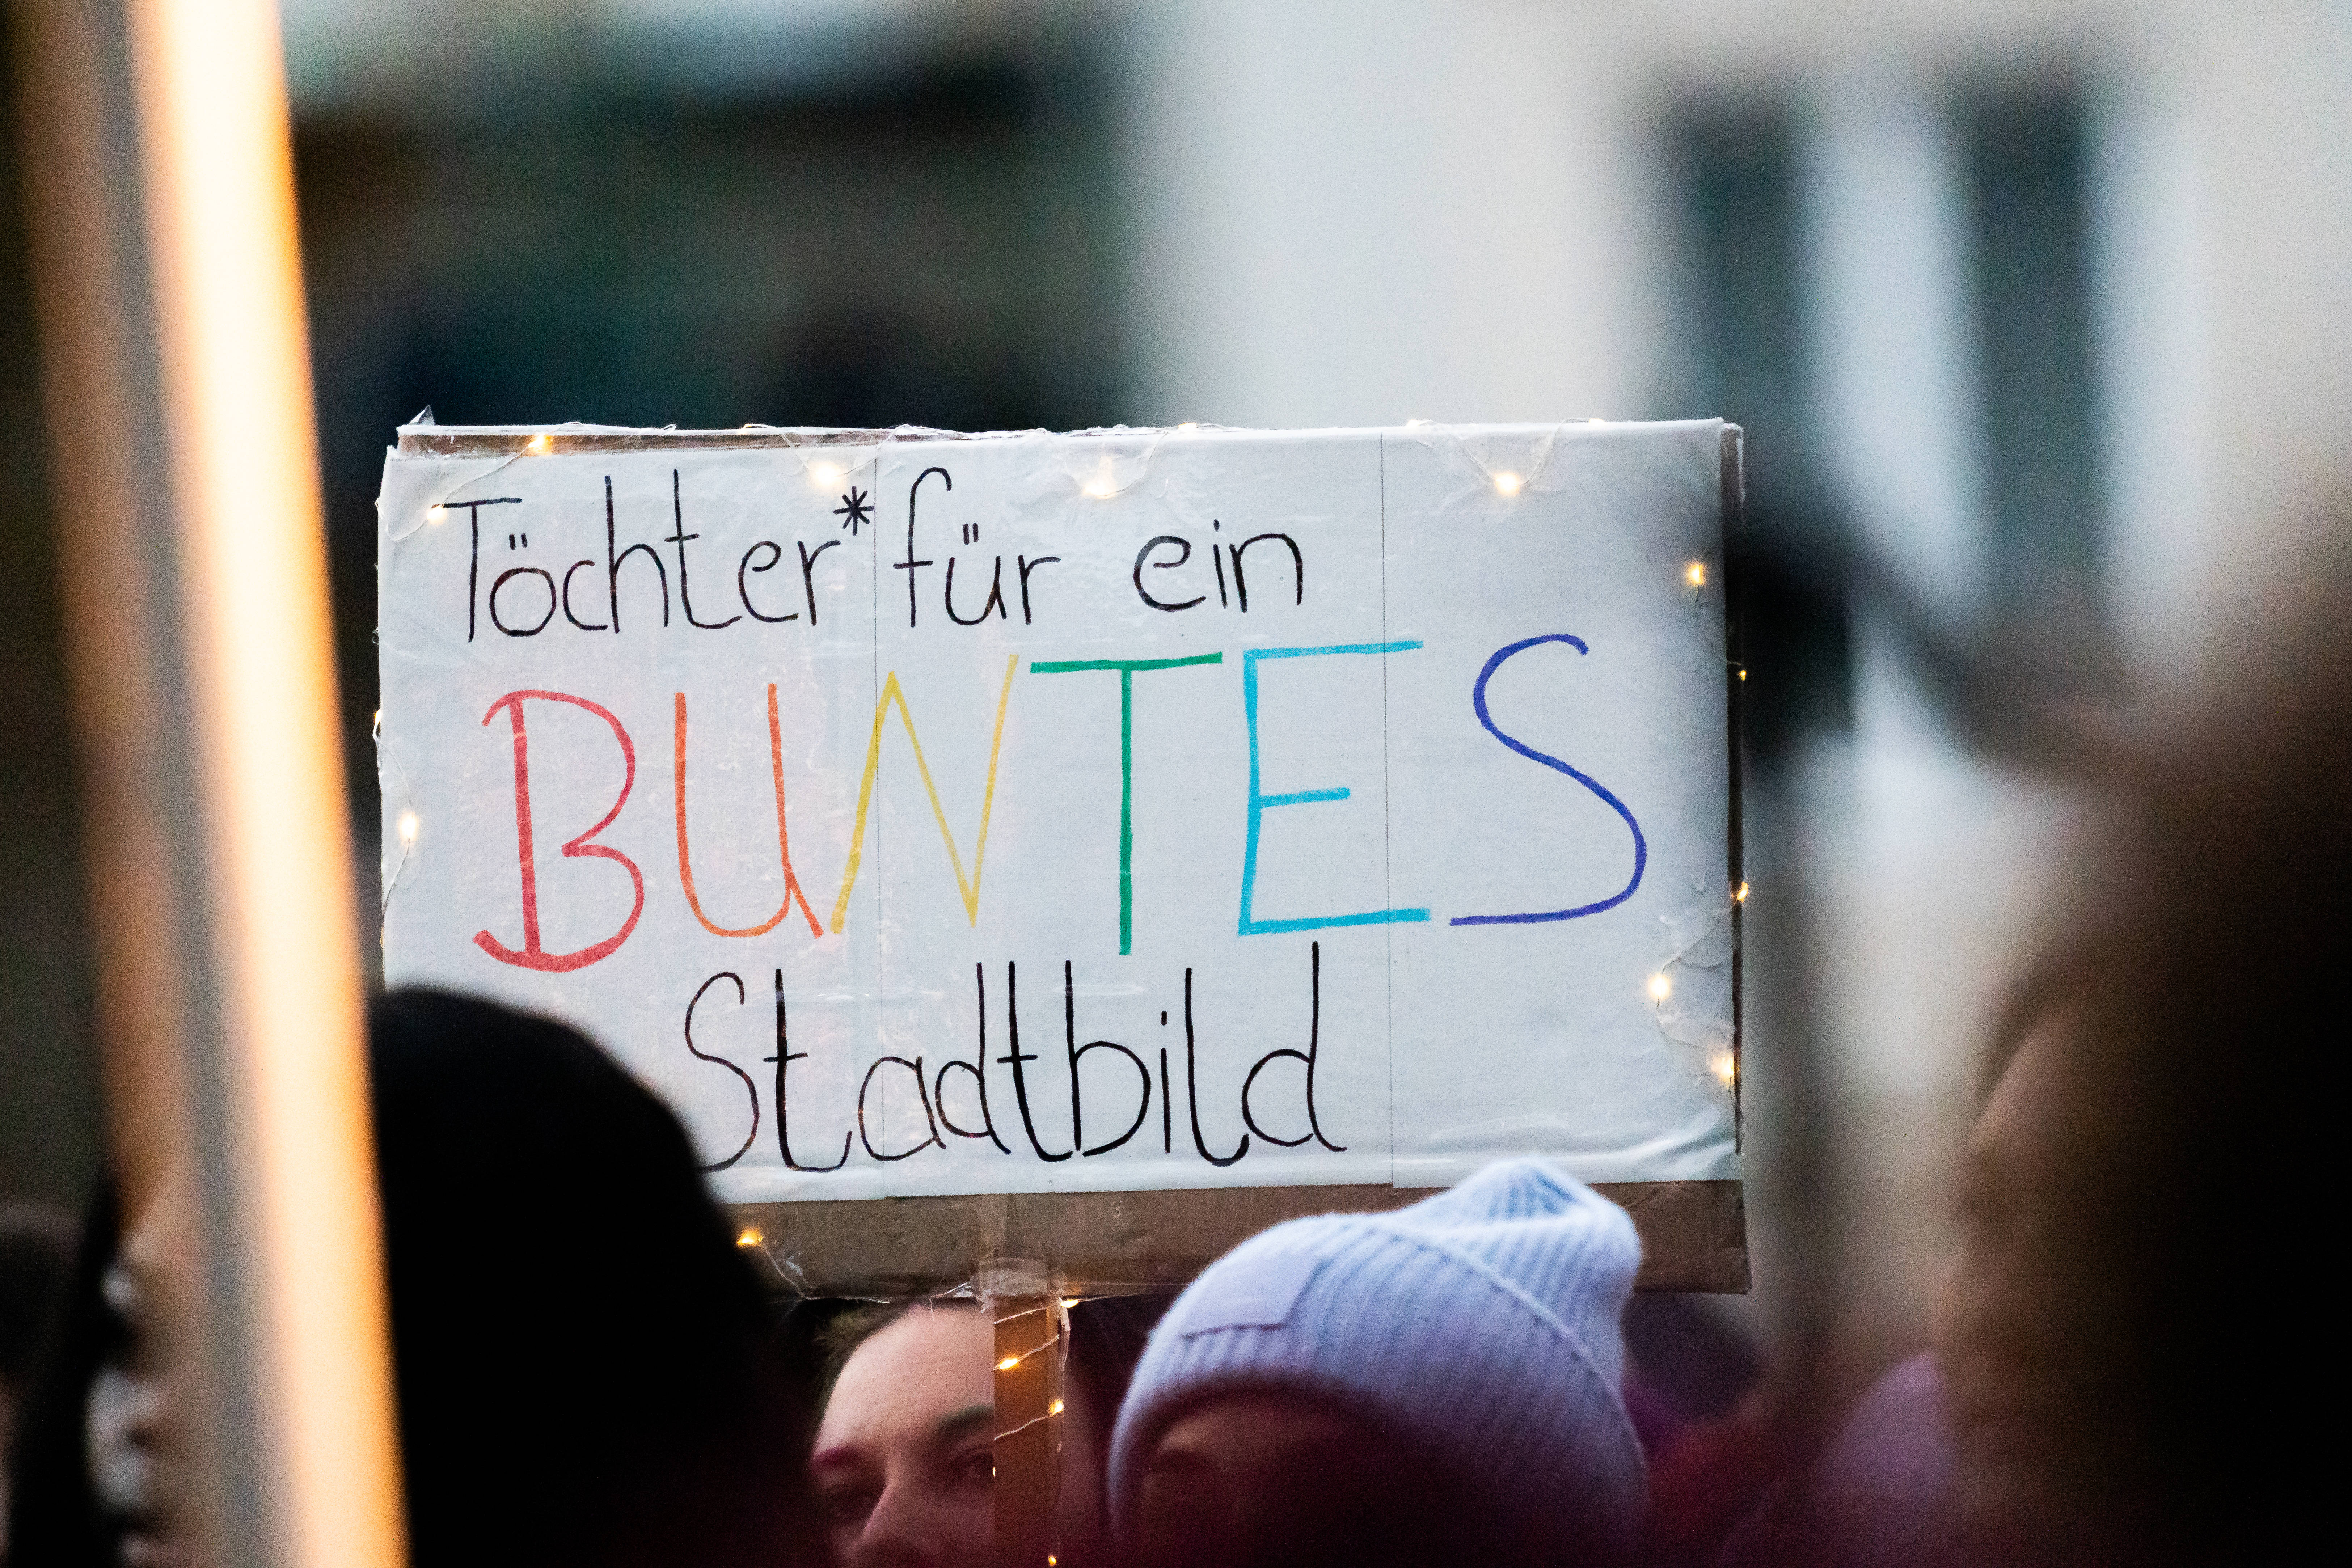 Töchter* für ein
BUNTES
Stadtbild